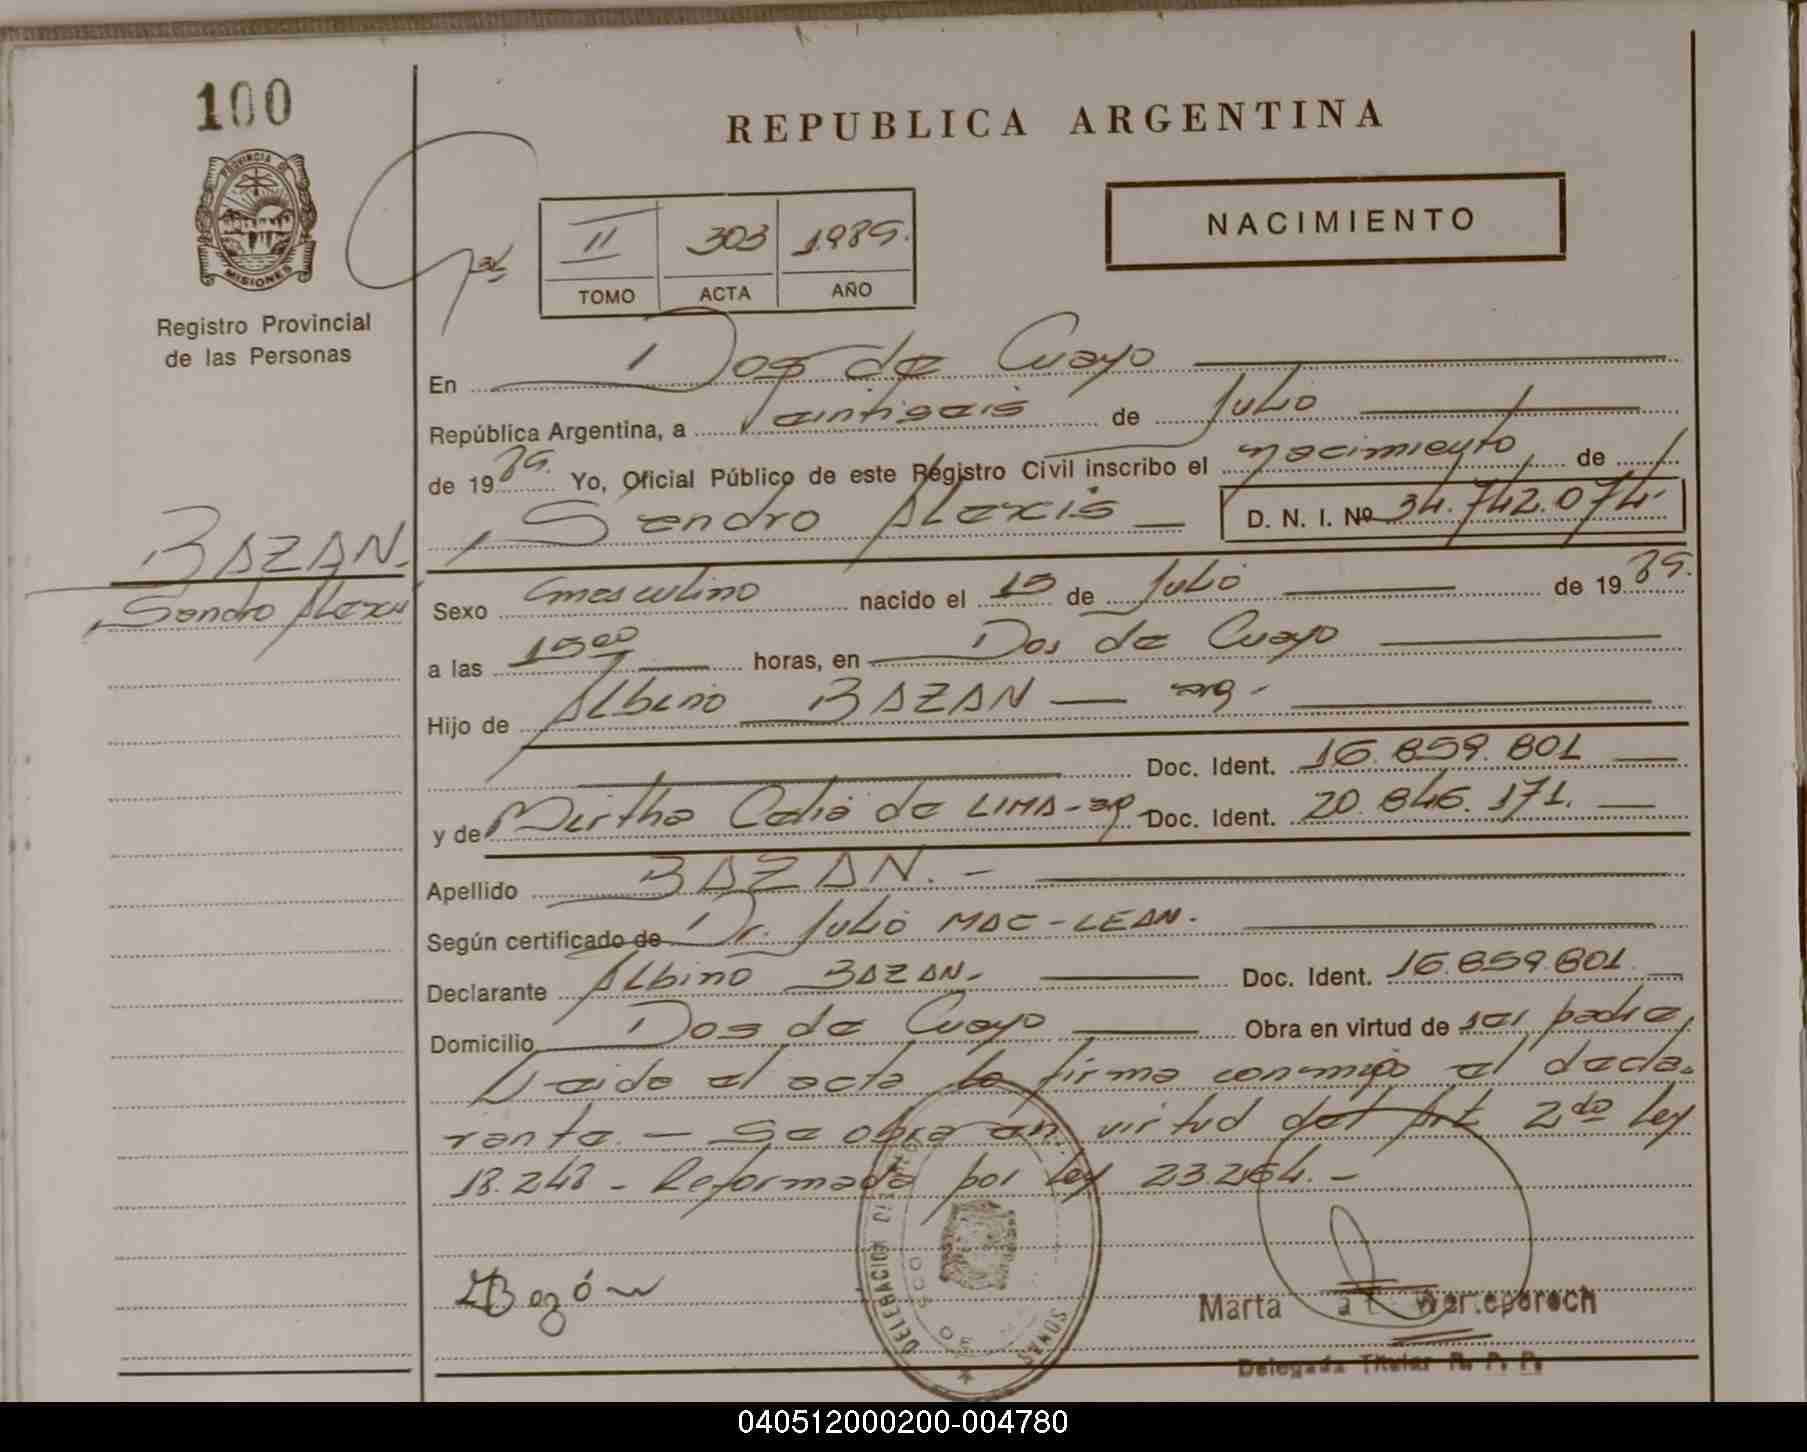 100
PROVINCIA DE
MISIONES
Registro Provincial
de las Personas
REPUBLICA ARGENTINA
NACIMIENTO
II 303 1989.
TOMO ACTA AÑO
En Dos de Mayo
República Argentina, a veintiseis de Julio
de 1989. Yo, Oficial Público de este Registro Civil inscribo el nacimiento de
Sandro Alexis D. N. I. Nº 34.742.074.
BAZAN.
Sandro Alexis
Sexo masculino nacido el 15 de Julio de 1989.
a las 15 00 horas, en Dos de Mayo
Hijo de Albino BAZAN arg.
Doc. Ident. 16.859.801
y de Mirtha Celia de LIMA - arg Doc. Ident. 20.846.171.
Apellido BAZAN. -
Según certificado de Dr. Julio MAC-LEAN.
Declarante Albino BAZAN. Doc. Ident. 16.859.801
Domicilio Dos de Mayo Obra en virtud de ser padre
Leida el acta la firma conmigo el decla.
rante. - Se obra en virtud del Art 2do Ley
18.248 - Reformada por Ley 23.264. -
DELEGACION
Bazán
Marta
Delegada Titular R. P. P.
040512000200-004780